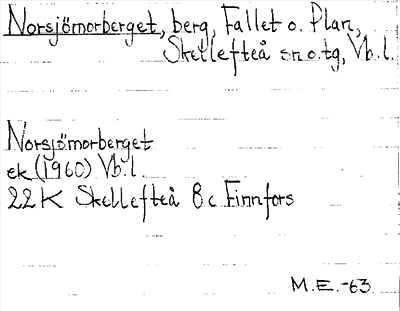 Norsjömorberget, berg, Fallet o. Plan,
Skellefteå sn o. tg, Vb. l.
Norsjömorberget
ek (1960) Vb. l.
22 K Skellefteå 8 c Finnfors
M.E. -63